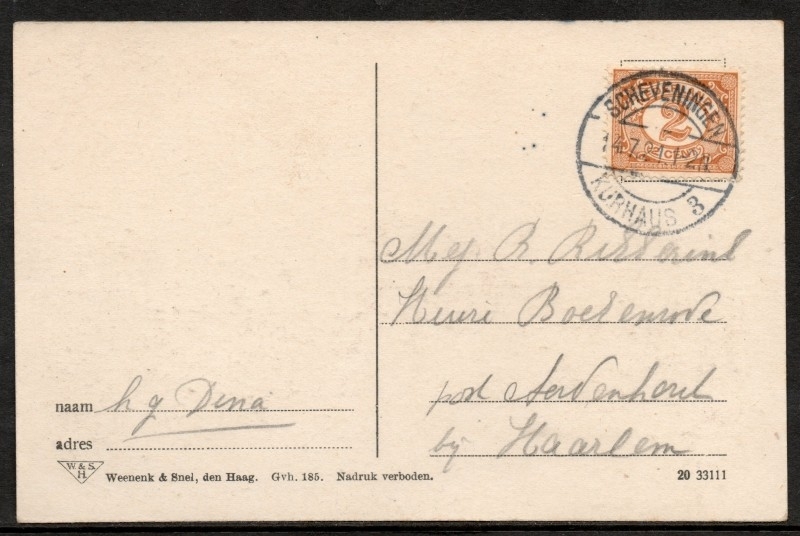 SCHEVENINGEN
2
2 CENT
KURHAUS 3
Mej R.
Huize Boekenrode
post Aerdenhout
bij Haarlem
naam h g Dina
adres
W. & S. H.
Weenenk & Snel, den Haag. Gvh. 185. Nadruk verboden.
20 33111